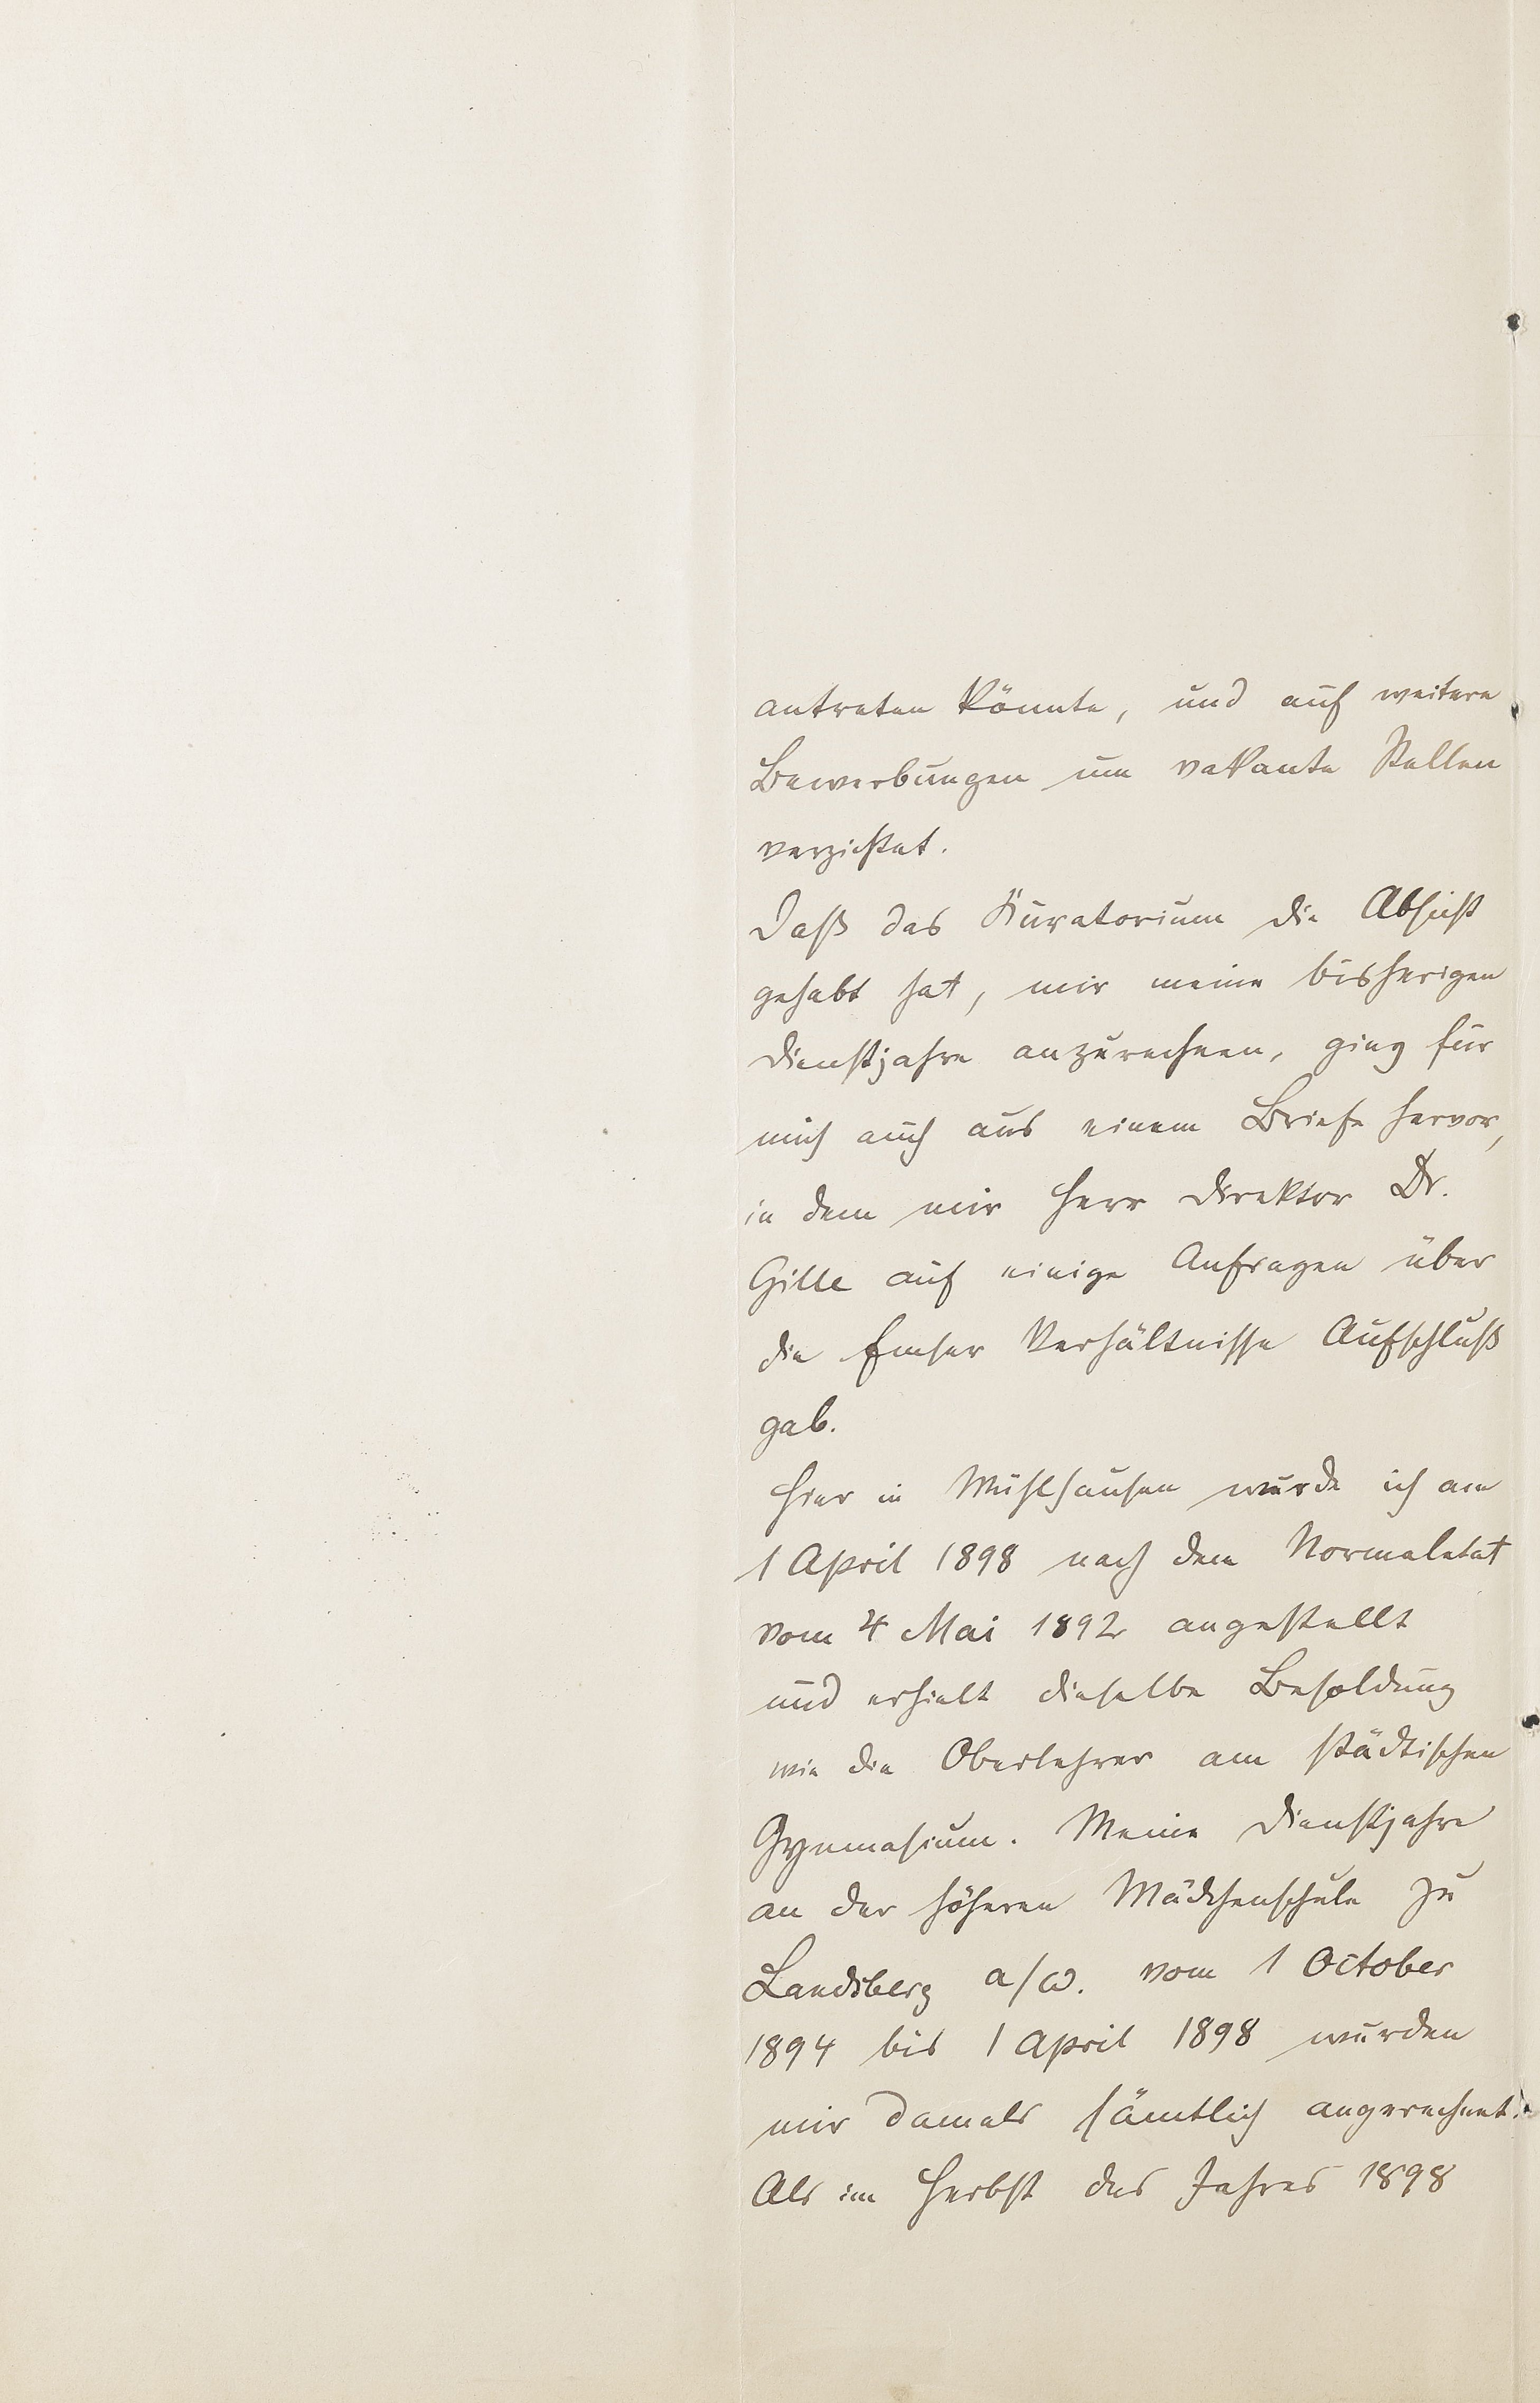 antreten könnte, und auf weitere
Bewerbungen um vakante Stellen
verzichtet.
Daß das Kuratorium die Absicht
gehabt hat, mir meine bisherigen
Dienstjahre anzurechnen, ging für
mich auch aus einem Briefe hervor,
in dem mir Herr Direktor Dr.
Gille auf einige Anfragen über
die Emser Verhältnisse Aufschluß
gab.
Hier in Mühlhausen wurde ich am
1 April 1898 nach dem Normaletat
vom 4 Mai 1892 angestellt
und erhielt dieselbe Besoldung
wie die Oberlehrer am städtischen
Gymnasium. Meine Dienstjahre
an der höheren Mädchenschule zu
Landsberg a/W. vom 1 October
1894 bis 1 April 1898 wurden
mir damals sämtlich angerechnet.
Als im Herbst des Jahres 1898